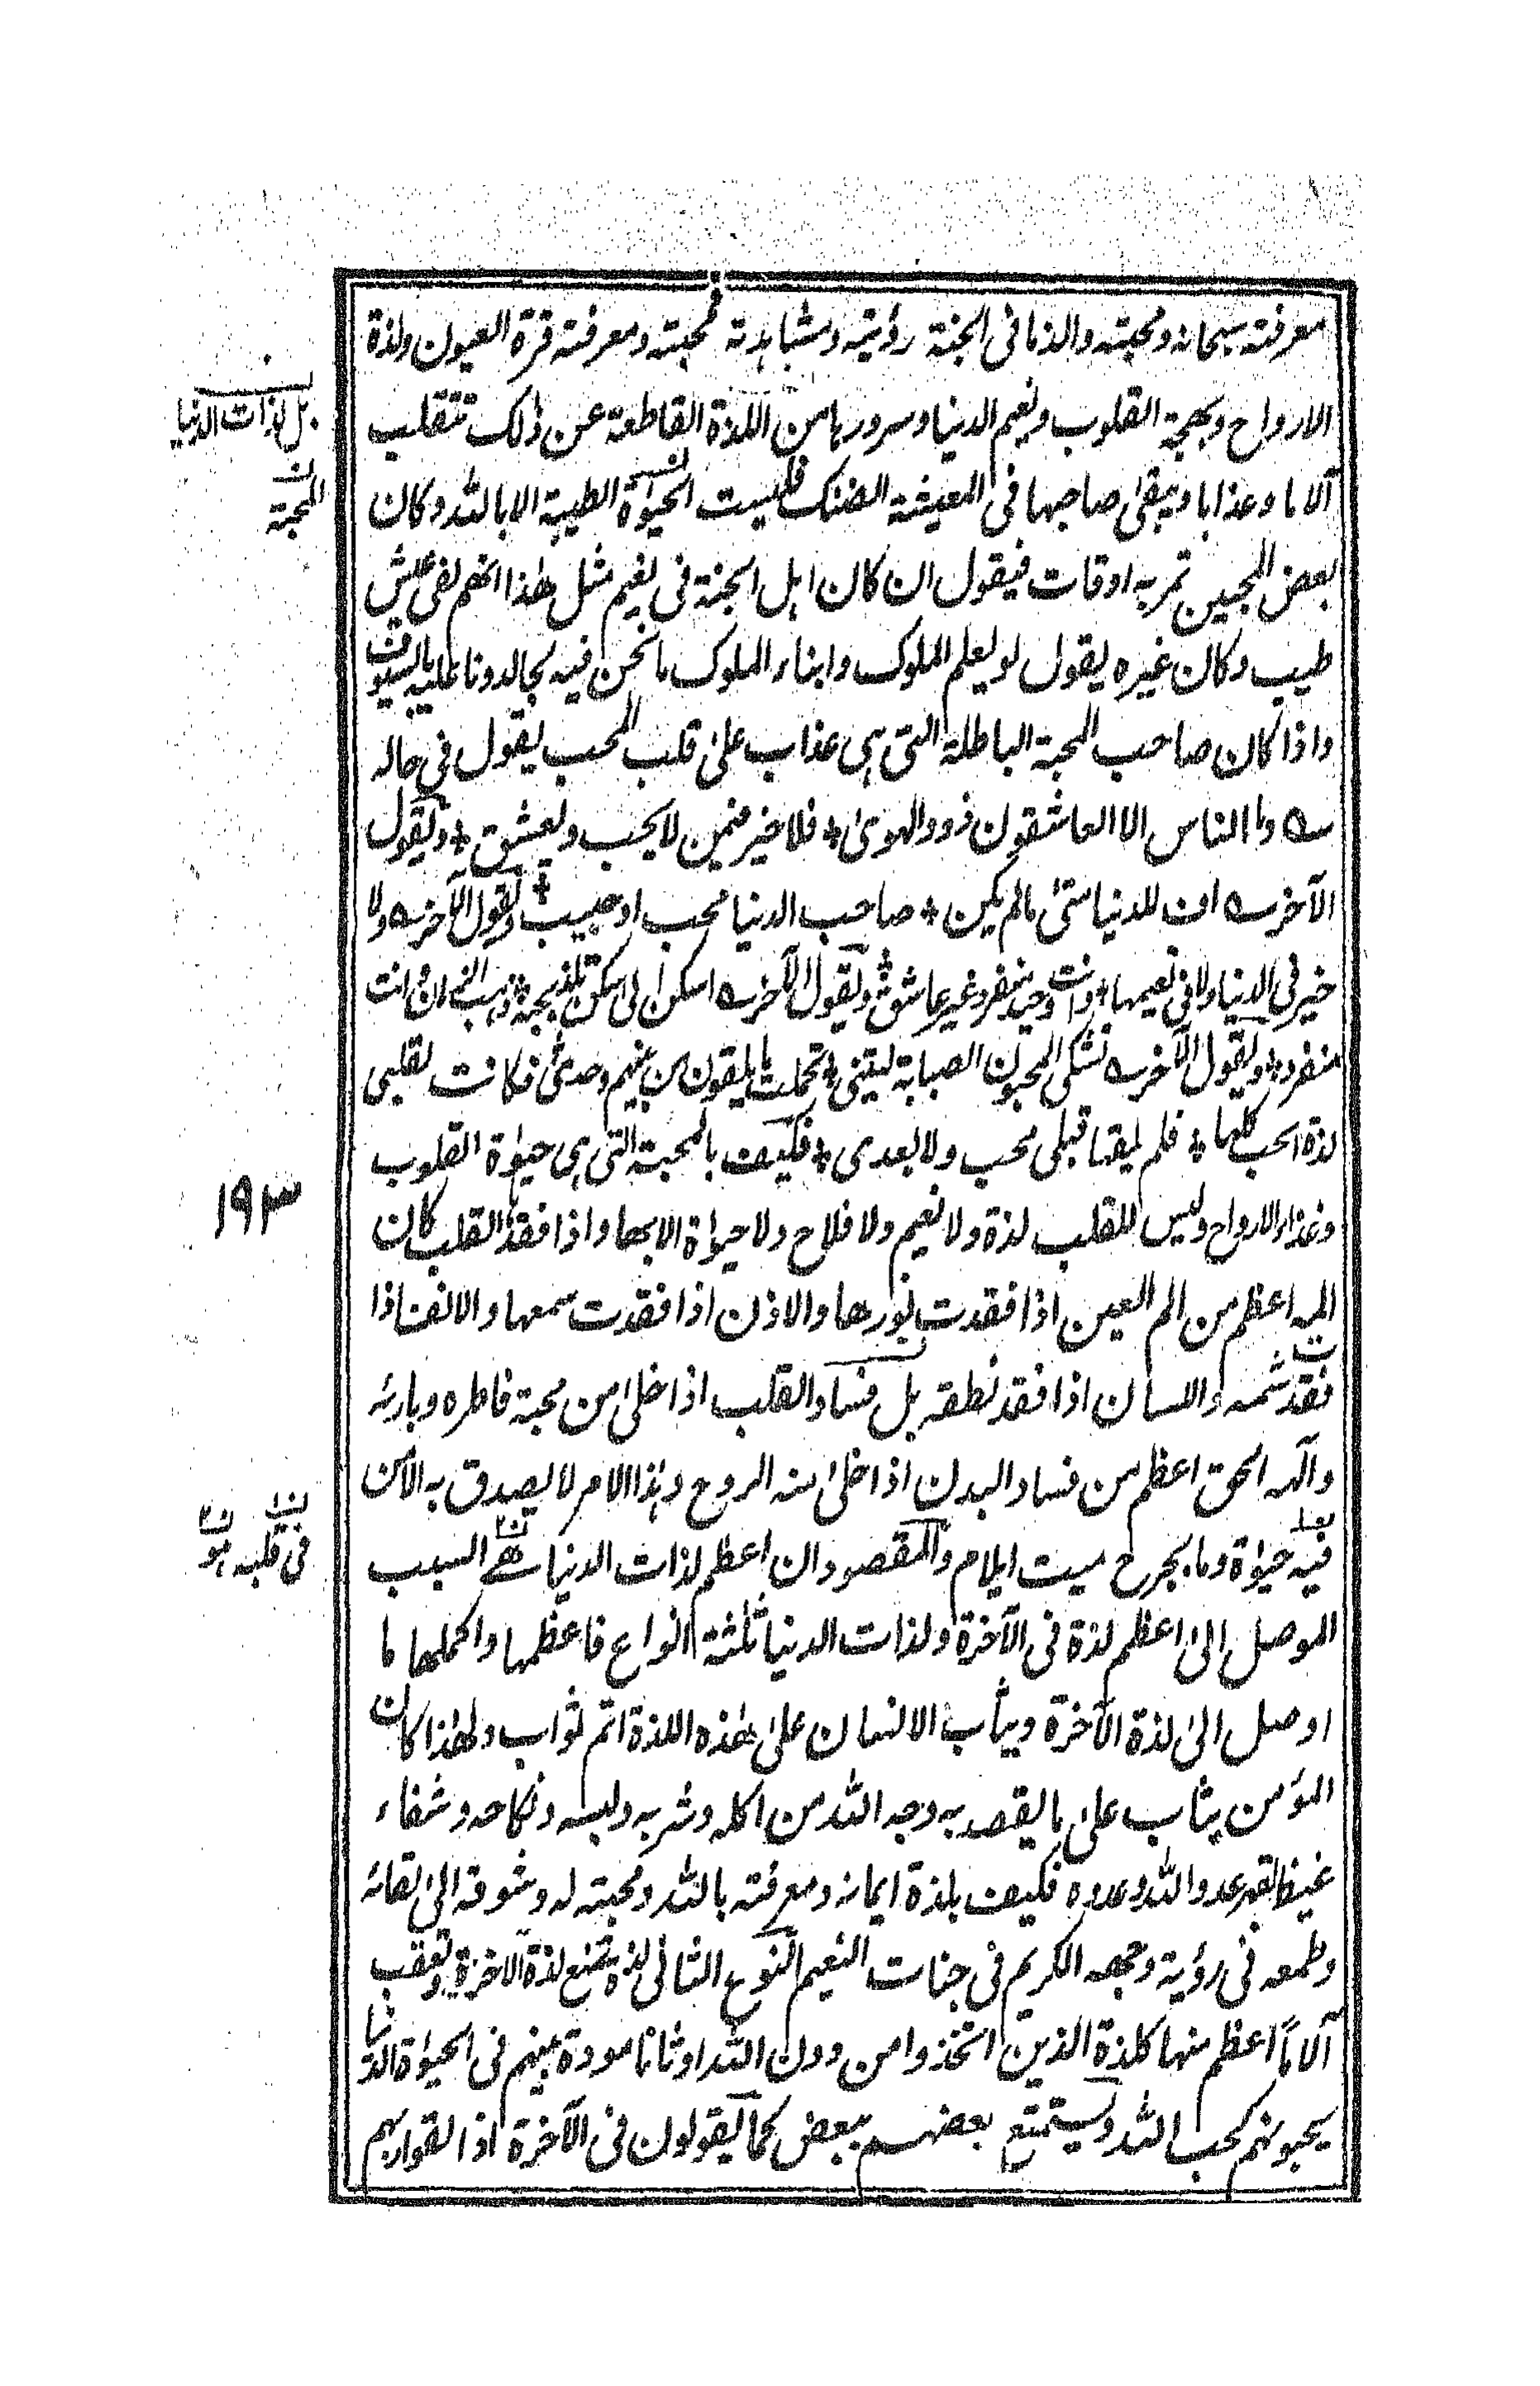 معرفته سبحانه ومحبته والذ ما في الجنة رؤيته ومشاهدته فمحبته ومعرفته قرة العيون ولذة
الارواح وبهجة القلوب ونعيم الدنيا وسرورها من اللذة القاطعة عن ذلك تتقلب
آلاما وعذابا ويبقى صاحبها في المعيشة الضنك فليست الحيوة الطيبة الا بالله وكان
بعض المحبين تمر به اوقات فيقول ان كان اهل الجنة في نعيم مثل هذا انهم لفي عيش
طيب وكان غيره يقول لو يعلم الملوك وابناء الملوك ما نحن فيه لجالدونا عليه بالسيوف
واذا كان صاحب المحبة الباطلة التي هي عذاب على قلب المحب يقول في حاله
وما الناس الا العاشقون ذوو الهوى * فلا خير فيمن لا يحب ويعشق * ويقول
الآخر اف للدنيا متى ما لم يكن * صاحب الدنيا محب او حبيب * ويقول الآخر ولا
خير في الدنيا ولا في نعيمها * وانت وحيد منفرد غير عاشق * ويقول الآخر اسكن الى سكن تلذ بحبه * ذهب الزمان وانت
منفرد * ويقول الآخر تشكى المحبون الصبابة ليتني * تحملت ما يلقون من بينهم وحدي * فكانت لقلبي
لذة الحب كلها * فلم يلقها قبلي محب ولا بعدي * فكيف بالمحبة التي هي حيوة القلوب
وغذاء الارواح وليس للقلب لذة ولا نعيم ولا فلاح ولا حيوة الا بها واذا فقدها القلب كان
المه اعظم من الم العين اذا فقدت نورها والاذن اذا فقدت سمعها والانف اذا
فقد شمه واللسان اذا فقد نطقه بل فساد القلب اذا خلى من محبة فاطره وبارئه
وآلهه الحق اعظم من فساد البدن اذا خلى منه الروح وهذا الامر لا يصدق به الا من
فيه حيوة وما بجرح ميت ايلام والمقصود ان اعظم لذات الدنيا هي السبب
الموصل الى اعظم لذة في الآخرة ولذات الدنيا ثلثة انواع فاعظمها واكملها ما
اوصل الى لذة الآخرة ويثاب الانسان على هذه اللذة اتم ثواب ولهذا كان
المؤمن يثاب على ما يقصد به وجه الله من اكله وشربه ولبسه ونكاحه وشفاء
غيظه لقهر عدو الله وعدوه فكيف بلذة ايمانه ومعرفته بالله ومحبته له وشوقه الى لقائه
وطمعه في رؤية وجهه الكريم في جنات النعيم النوع الثاني لذة تمنع لذة الآخرة وتعقب
آلاماً اعظم منها كلذة الذين اتخذوا من دون الله اوثانا مودة بينهم في الحيوة الدنيا
يحبونهم كحب الله ويستمتع بعضهم ببعض كما يقولون في الآخرة اذا لقوا ربهم
بل لذات الدنيا
المحبة
١٩٣
في قلبه هو